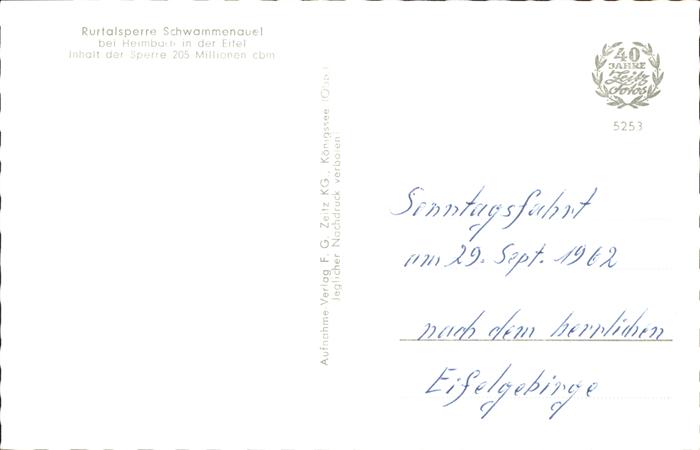 Rurtalsperre Schwammenauel
bei Heimbach in der Eifel
Inhalt der Sperre 205 Millionen cbm
40
JAHRE
Zeitz
Fotos
5253
Aufnahme Verlag F. G. Zeitz KG., Königssee (Obb.)
Jeglicher Nachdruck verboten!
Sonntagsfahrt
am 29. Sept. 1962
nach dem herrlichen
Eifelgebirge